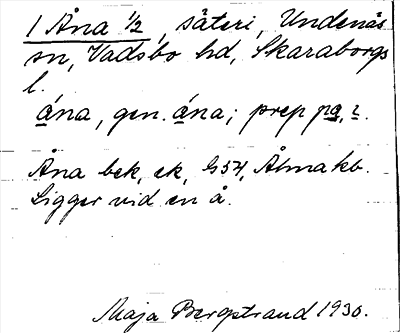 1 Åna ½, säteri, Undenäs
sn, Vadsbo hd, Skaraborgs
l.
ána, gen. ána; prep pɑ, i.
Åna bek, ek, G 54, Älmakb.
Ligger vid en å.
Maja Bergstrand 1930.